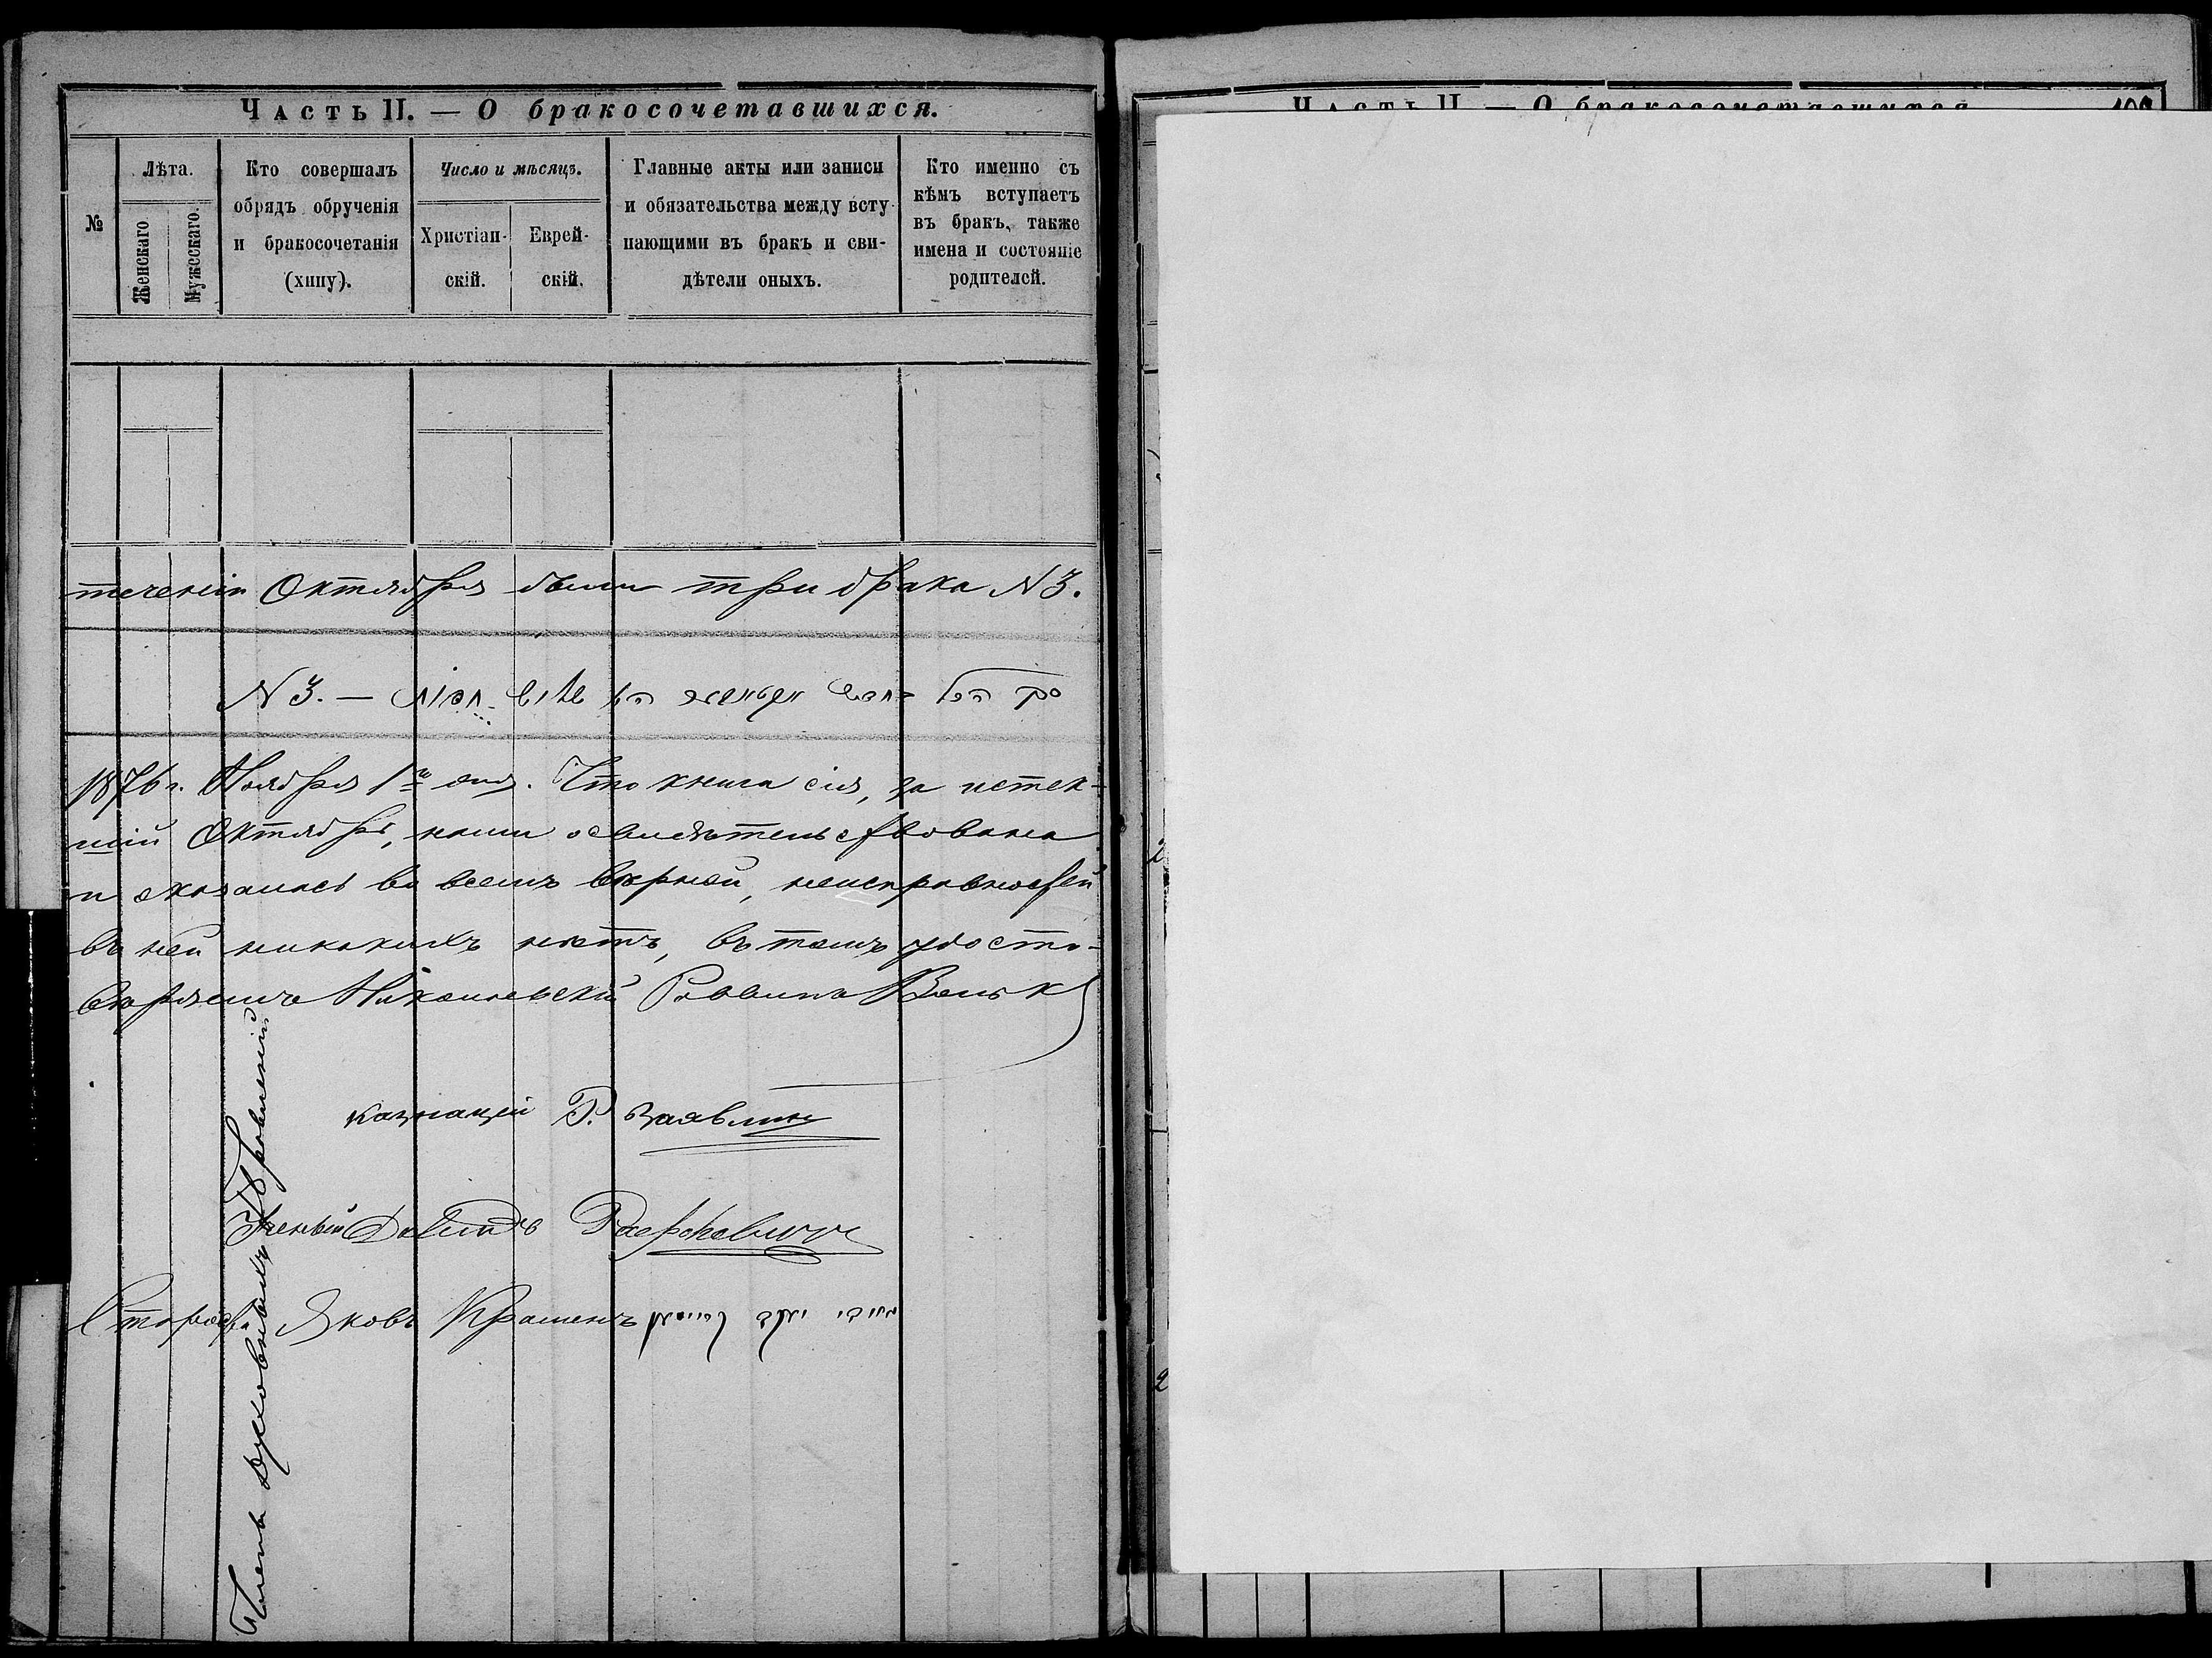 Часть II. — О бракосочетавшихся.
№
Лѣта.
Женскаго
Мужескаго.
Кто совершалъ
обрядъ обрученія
и бракосочетанія
(хипу).
Число и мѣсяцъ.
Христіан-
скій.
Еврей-
скій.
Главные акты или записи
и обязательства между всту-
пающими въ бракъ и сви-
дѣтели оныхъ.
Кто именно съ
кѣмъ вступаетъ
въ бракъ, также
имена и состояніе
родителей.
теченіи Октября были три брака N 3.
N 3. —
1876 г. Ноября 1го дня. Что книга сія, за истек-
шій Октябрь, нами освидѣтельствована
и оказалась во всемъ вѣрной, неисправностей
въ ней никакихъ нѣтъ, въ томъ удосто-
вѣряемъ Николаевскій Раввинъ
казначей Р.
Ученый Давидъ
Староста Яковъ
Члены Духовныхъ Правленій
Часть II. — О бракосочетавшихся
2
2